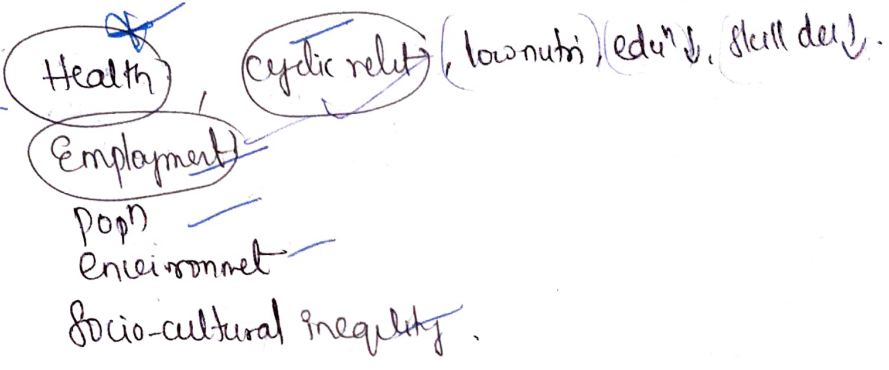 Health, cyclic relat (low nutri) (eduⁿ↓, skill del↓.
Employment
popⁿ
enveironmet
Socio-cultural ineqility.